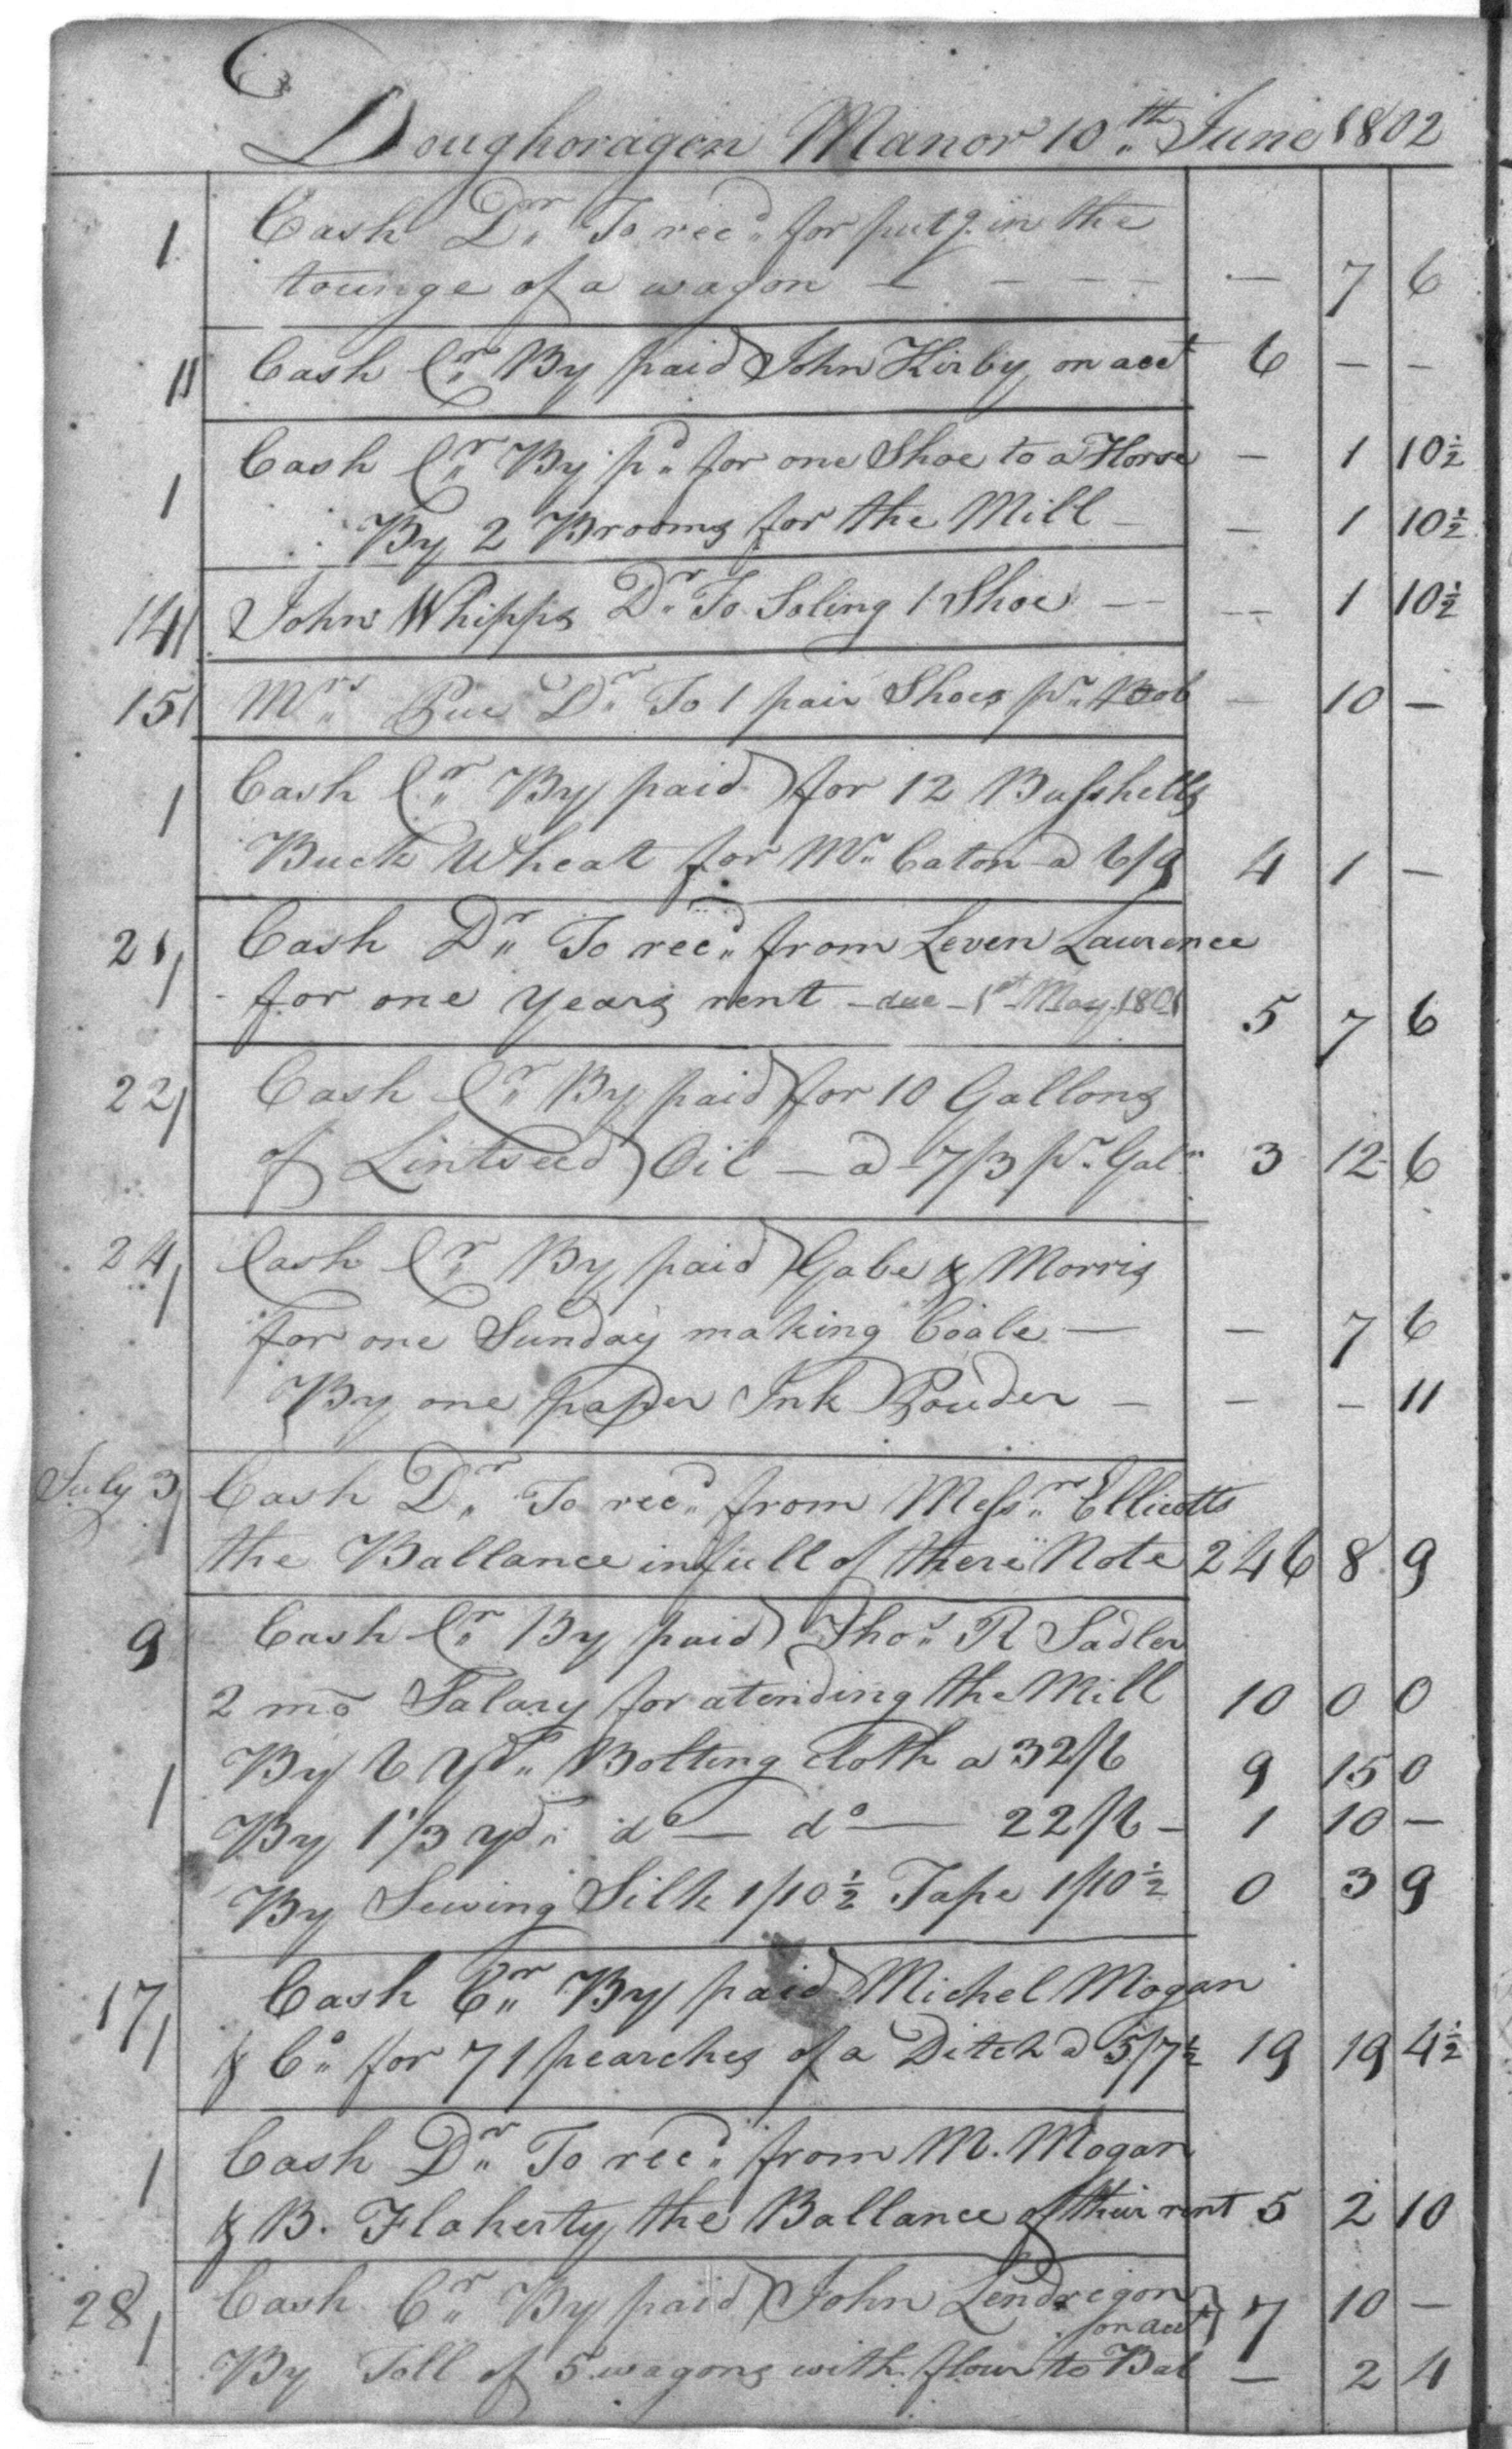 Doughoragen Manor 10th June 1802
1 Cash Dr To recd for putg in the
tounge of a wagon — — — — — 7 6
11 Cash Cr By paid John Kirby on acct 6 — —
1 Cash Cr By pd for one Shoe to a Horse — 1 10½
By 2 Brooms for the Mill — — 1 10½
14 John Whipps Dr To Soling 1 Shoe — — 1 10½
15 Mrs Pue Dr To 1 pair Shoes pr Bob — 10 —
1 Cash Cr By paid for 12 Busshells
Buck Wheat for Mr Caton a 6/9 4 1 —
21 Cash Dr To recd from Leven Laurence
for one Years rent — due — 1st May 1801 5 7 6
22 Cash Cr By paid for 10 Gallons
of Lintseed Oil — a 7/3 pr Galn 3 12 6
24 Cash Cr By paid Gabe & Morris
for one Sunday making Coale — — 7 6
By one paper Ink Pouder — — — 11
July 3 Cash Dr To recd from Messrs Ellicotts
the Ballance in full of there Note 246 8 9
9 Cash Cr By paid Thos R Sadler
2 mo Salary for atending the Mill 10 0 0
1 By 6 Yds Bolting cloth a 32/6 9 15 0
By 1 1/3 yds do — do — 22/6 — 1 10 —
By Sewing Silk 1/10½ Tape 1/10½ 0 3 9
17 Cash Cr By paid Michel Mogan
& Co for 71 pearches of a Ditch a 5/7½ 19 19 4½
1 Cash Dr To recd from M. Mogan
& B. Flaherty the Ballance of their rent 5 2 10
28 Cash Cr By paid John Lendregon
on acct } 7 10 —
By Toll of 5 wagons with flour to Bal — 2 4